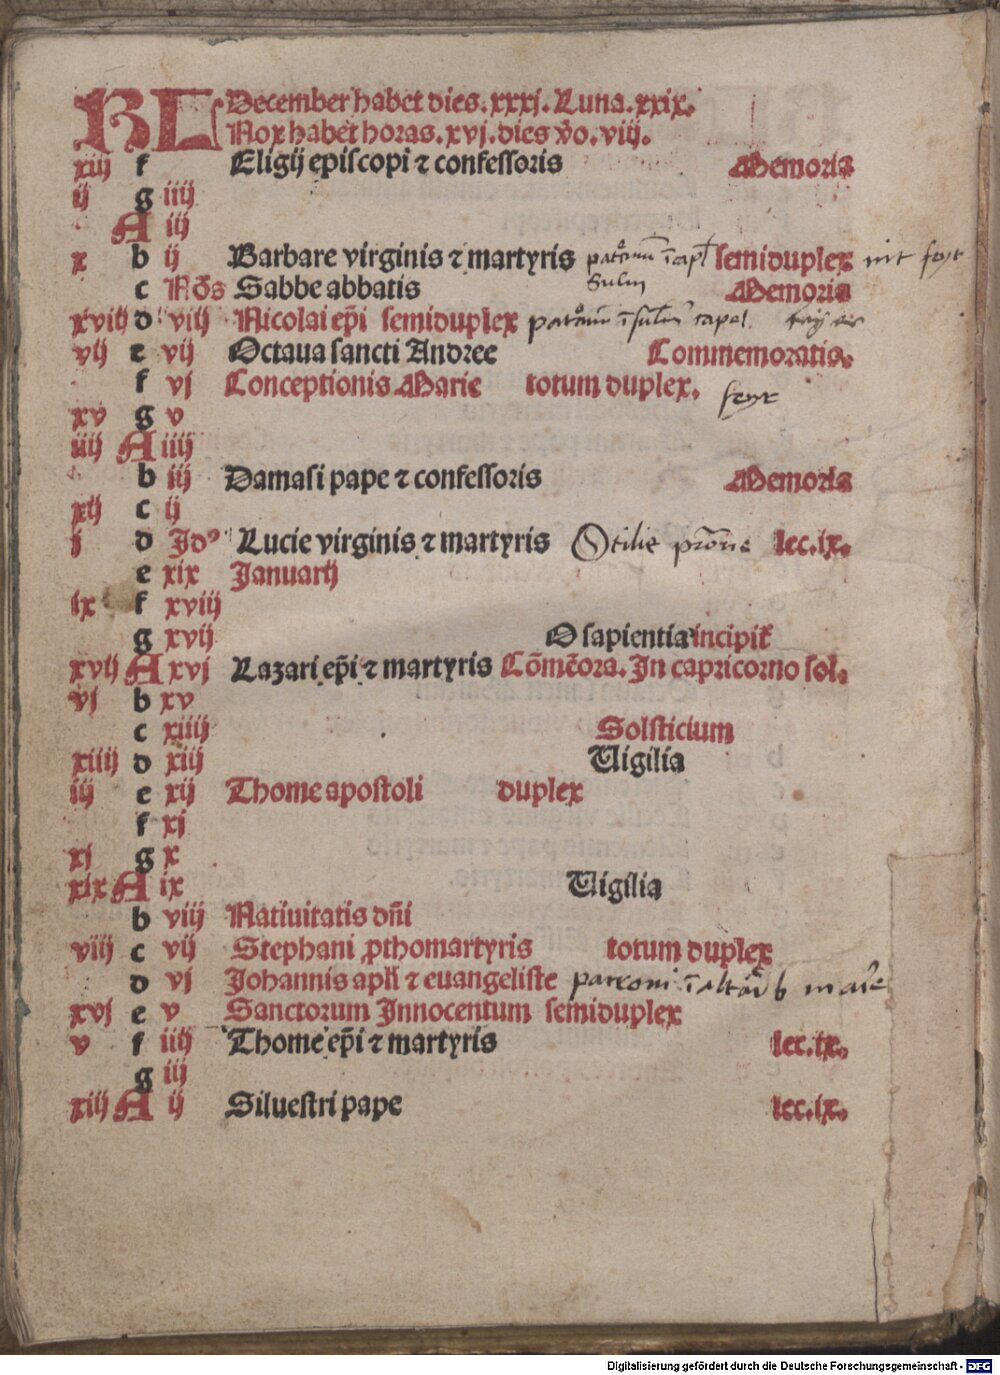 KL December habet dies. xxxj. Luna. xxix.
Nox habet horas. xvj. dies v̄o. viij.
xiij f Eligij episcopi ⁊ confessoris Memoria
ij g iiij
A iij
x b ij Barbare virginis ⁊ martyris semiduplex nit feyr
c Nōs Sabbe abbatis Memoria
xviij d viij Nicolai ep̄i semiduplex
vij e vij Octaua sancti Andree Commemoratio.
f vj Conceptionis Marie totum duplex. feyr
xv g v
iiij A iiij
b iij Damasi pape ⁊ confessoris Memoria
xij c ij
j d Idꝰ Lucie virginis ⁊ martyris Otilie lec. ix.
e xix Januarij
ix f xviij
g xvij O sapientia incipit̄
xvij A xvj Lazari ep̄i ⁊ martyris Cōmēora. In capricorno sol.
vj b xv
c xiiij Solsticium
xiiij d xiij Uigilia
iij e xij Thome apostoli duplex
f xj
xj g x
xix A ix Uigilia
b viij Natiuitatis dn̄i
viij c vij Stephani ꝓthomartyris totum duplex
d vj Johannis apl̄i ⁊ euangeliste patroni ī altāri b marie
xvj e v Sanctorum Innocentum semiduplex
v f iiij Thome ep̄i ⁊ martyris lec. ix.
g iij
xiij A ij Siluestri pape lec. ix.
Digitalisierung gefördert durch die Deutsche Forschungsgemeinschaft - DFG